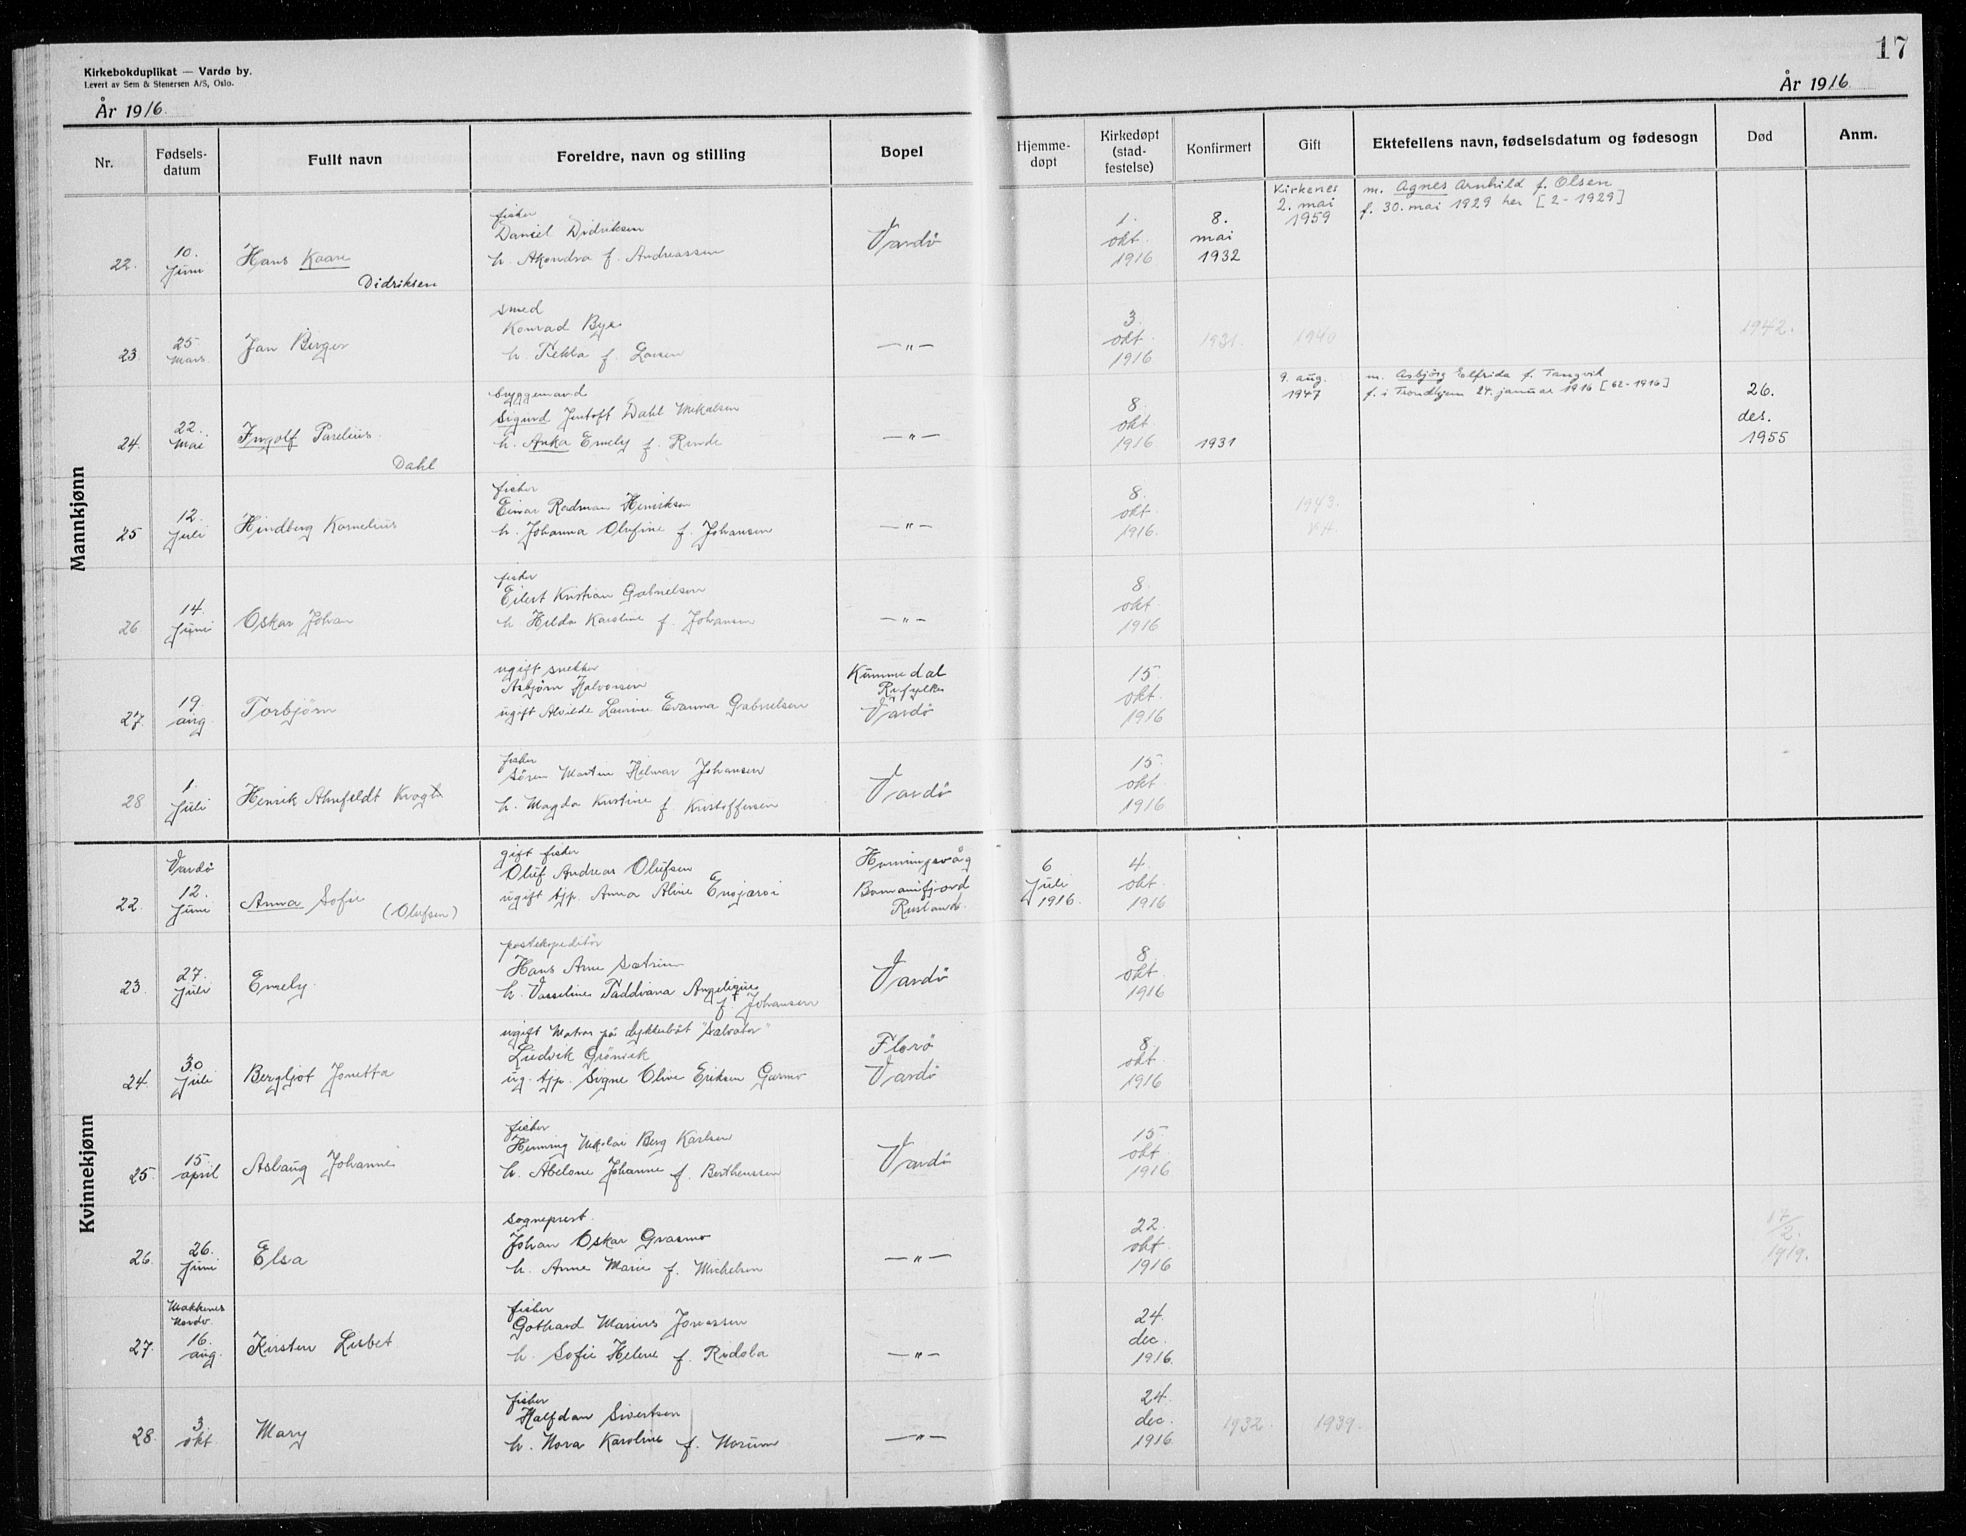 17
Kirkebokduplikat — Vardø by.
Levert av Sem & Stenersen A/S, Oslo.
År 1916
År 1916
Nr.
Fødsels-
datum
Fullt navn
Foreldre, navn og stilling
Bopel
Hjemme-
døpt
Kirkedøpt
(stad-
festelse)
Konfirmert
Gift
Ektefellens navn, fødselsdatum og fødesogn
Død
Anm.
Mannkjønn
22.
10.
Juni
Hans Kaare
Didriksen
fisker
Daniel Didriksen
h. Akondra f. Andreassen
Vardö
1.
okt.
1916
8.
mai
1932
Kirkenes
2. mai
1959
m. Agnes Arnhild f. Olsen
f. 30. mai 1929 her [2-1929]
23.
25
Mars
Jan Birger
smed
Konrad Bye
h. Tekla f. Larsen
— " —
3.
okt.
1916
1931.
1940
1942.
24.
22.
Mai
Ingolf Parelius.
Dahl
byggemand
Sigurd Jentoft Dahl Mikalsen
h. Anka Emely f. Rinde
— " —
8.
okt
1916
1931
9. aug.
1947
m. Asbjörg Elfrida f. Tangvik
f. i Trondhjem 24. januar 1916 [62-1916]
26.
des.
1955
25
12.
Juli
Hindberg Kornelius
fisker
Einar Radman Henriksen
h. Johanna Olufine f. Johansen
— " —
8.
okt.
1916.
1943.
V.H.
26
14.
Juni
Oskar Johan
fisker
Eilert Kristian Gabrielsen
h. Hilda Karoline f. Johansen
— " —
8.
okt.
1916
27.
19.
aug.
Torbjörn
ugift snekker
Asbjørn Halvorsen
ugift Alvilde Laurine Evanna Gabrielsen
Kummedal
Ryfylke
Vardö
15
okt.
1916
28
1.
Juli
Henrik Ahnfeldt Krogh
fisker
Sören Martin Hilmar Johansen
h. Magda Kristine f. Kristoffersen
Vardö
15.
okt.
1916
Kvinnekjønn
22.
Vardö
12.
Juni
Anna Sofie
(Olufsen)
gift fisker
Oluf Andreas Olufsen
ugift tjp. Anna Aline Ensjærvi
Honningsvåg
Bomanifjord
Rusland.
6
Juli
1916.
4.
okt.
1916
23.
27.
Juli
Emely.
postekspeditör
Hans Arne Sætrum
h. Vasseline Taddiana Angelique
f. Johansen
Vardö
8.
okt.
1916
24.
30
Juli
Bergljot Jonetta
ugift Matros på dykkerbåt "Salvator"
Ludvik Grönvik
ug. tjp. Signe Olive Eriksen Garmo
Florö
Vardö
8.
okt.
1916
25.
15.
april
Aslaug Johanne
fisker
Henning Nikolai Berg Karlsen
h. Abelone Johanne f. Bertheussen
Vardö
15.
okt
1916
26.
26.
Juni
Elsa
Sogneprest.
Johan Oskar Grasmo
h. Anne Marie f. Michelsen
— " —
22.
okt.
1916
17/2.
1919.
27.
Makkenes
Nordv.
16.
aug.
Kirsten Lisbet
fisker
Gothard Marius Jonassen
h. Sofie Helene f. Ridola
— " —
24.
dec.
1916.
28.
3
okt.
Mary
fisker
Halfdan Sivertsen
h. Nora Karoline f. Norum
— " —
24.
dec.
1916
1932.
1939.